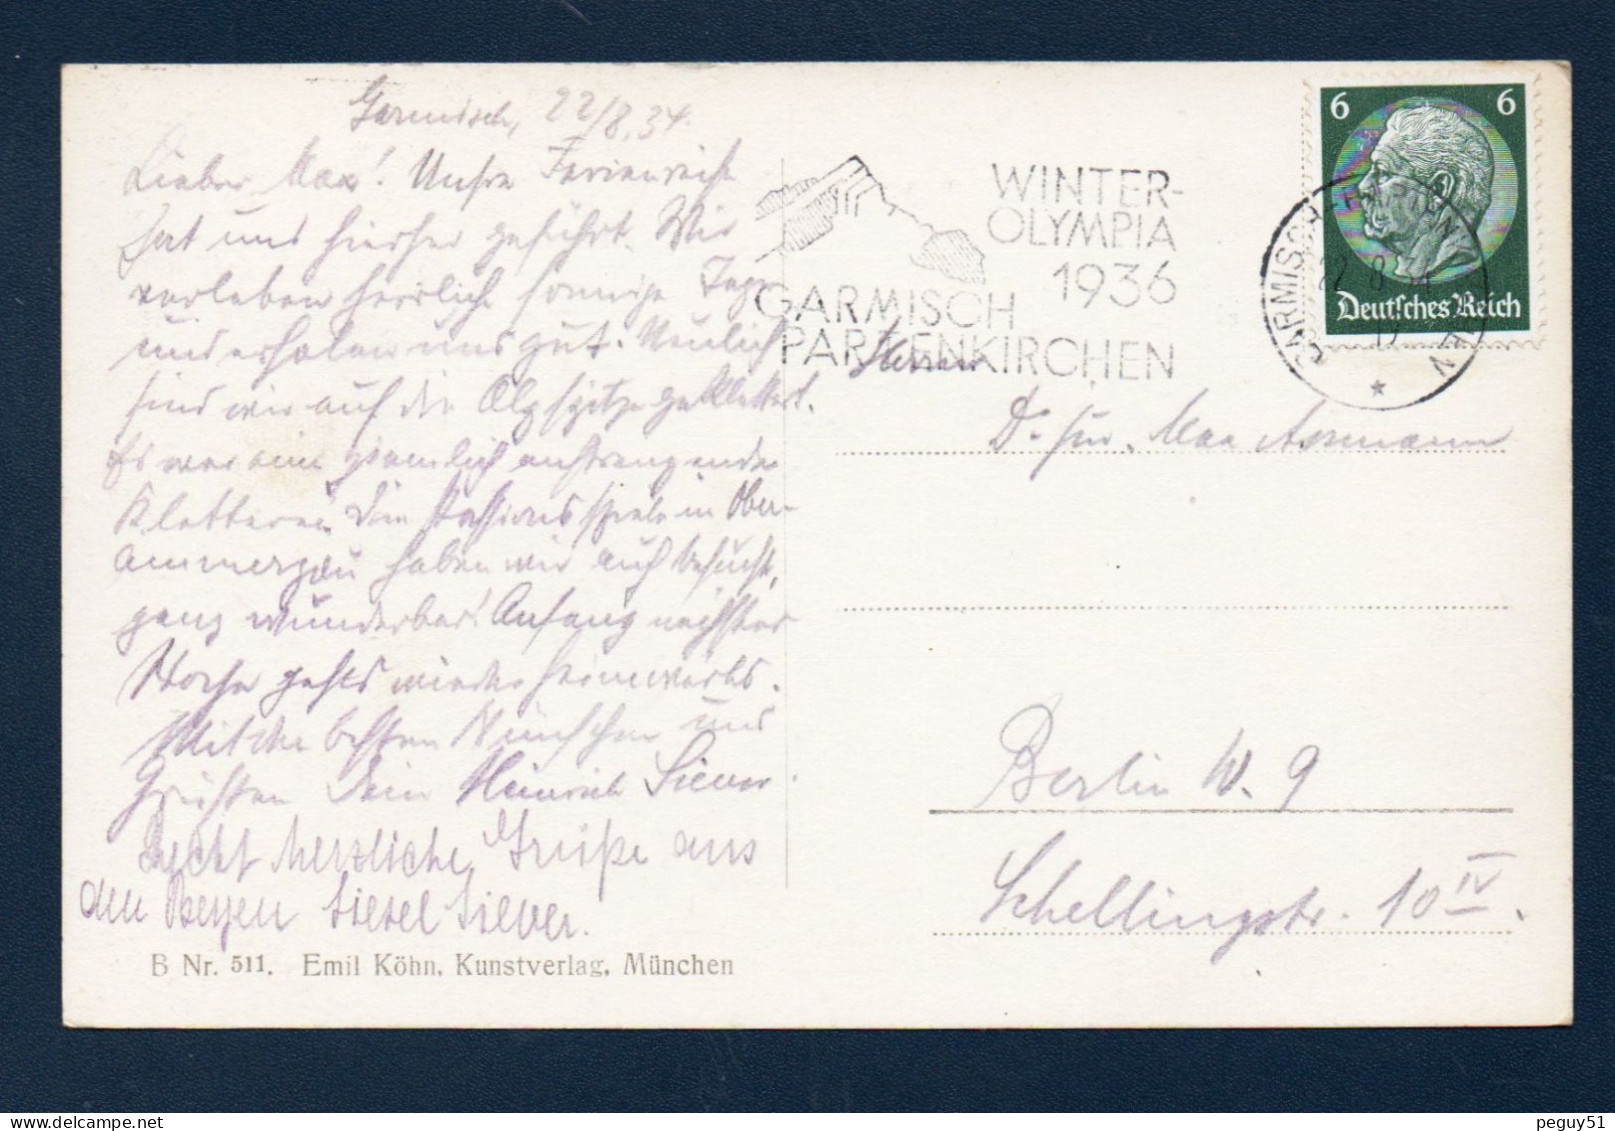 Garmisch, 22/8.34.
Lieber Max! Unsre Ferienreise
hat uns hierher geführt. Wir
verleben herrlich sonnige Tage
und erholen uns gut. Neulich
sind wir auf die Alpspitze geklettert.
Es war eine ziemlich anstrengende
Kletterei. Die Passionsspiele in Ober-
ammergau haben wir auch besucht,
ganz wunderbar! Anfang nächster
Woche gehts wieder heimwärts.
Mit den besten Wünschen und
Grüßen Dein Heinrich Siever.
Recht herzliche Grüße aus
den Bergen Liesel Siever.
B Nr. 511. Emil Köhn, Kunstverlag, München
WINTER-
OLYMPIA
1936
GARMISCH
PARTENKIRCHEN
6 6
Deutsches Reich
GARMISCH-PARTENKIRCHEN
22. 8. 34
Herrn
Dr. jur. Max Assmann
Berlin W. 9
Schellingstr. 10 IV.
peguy51